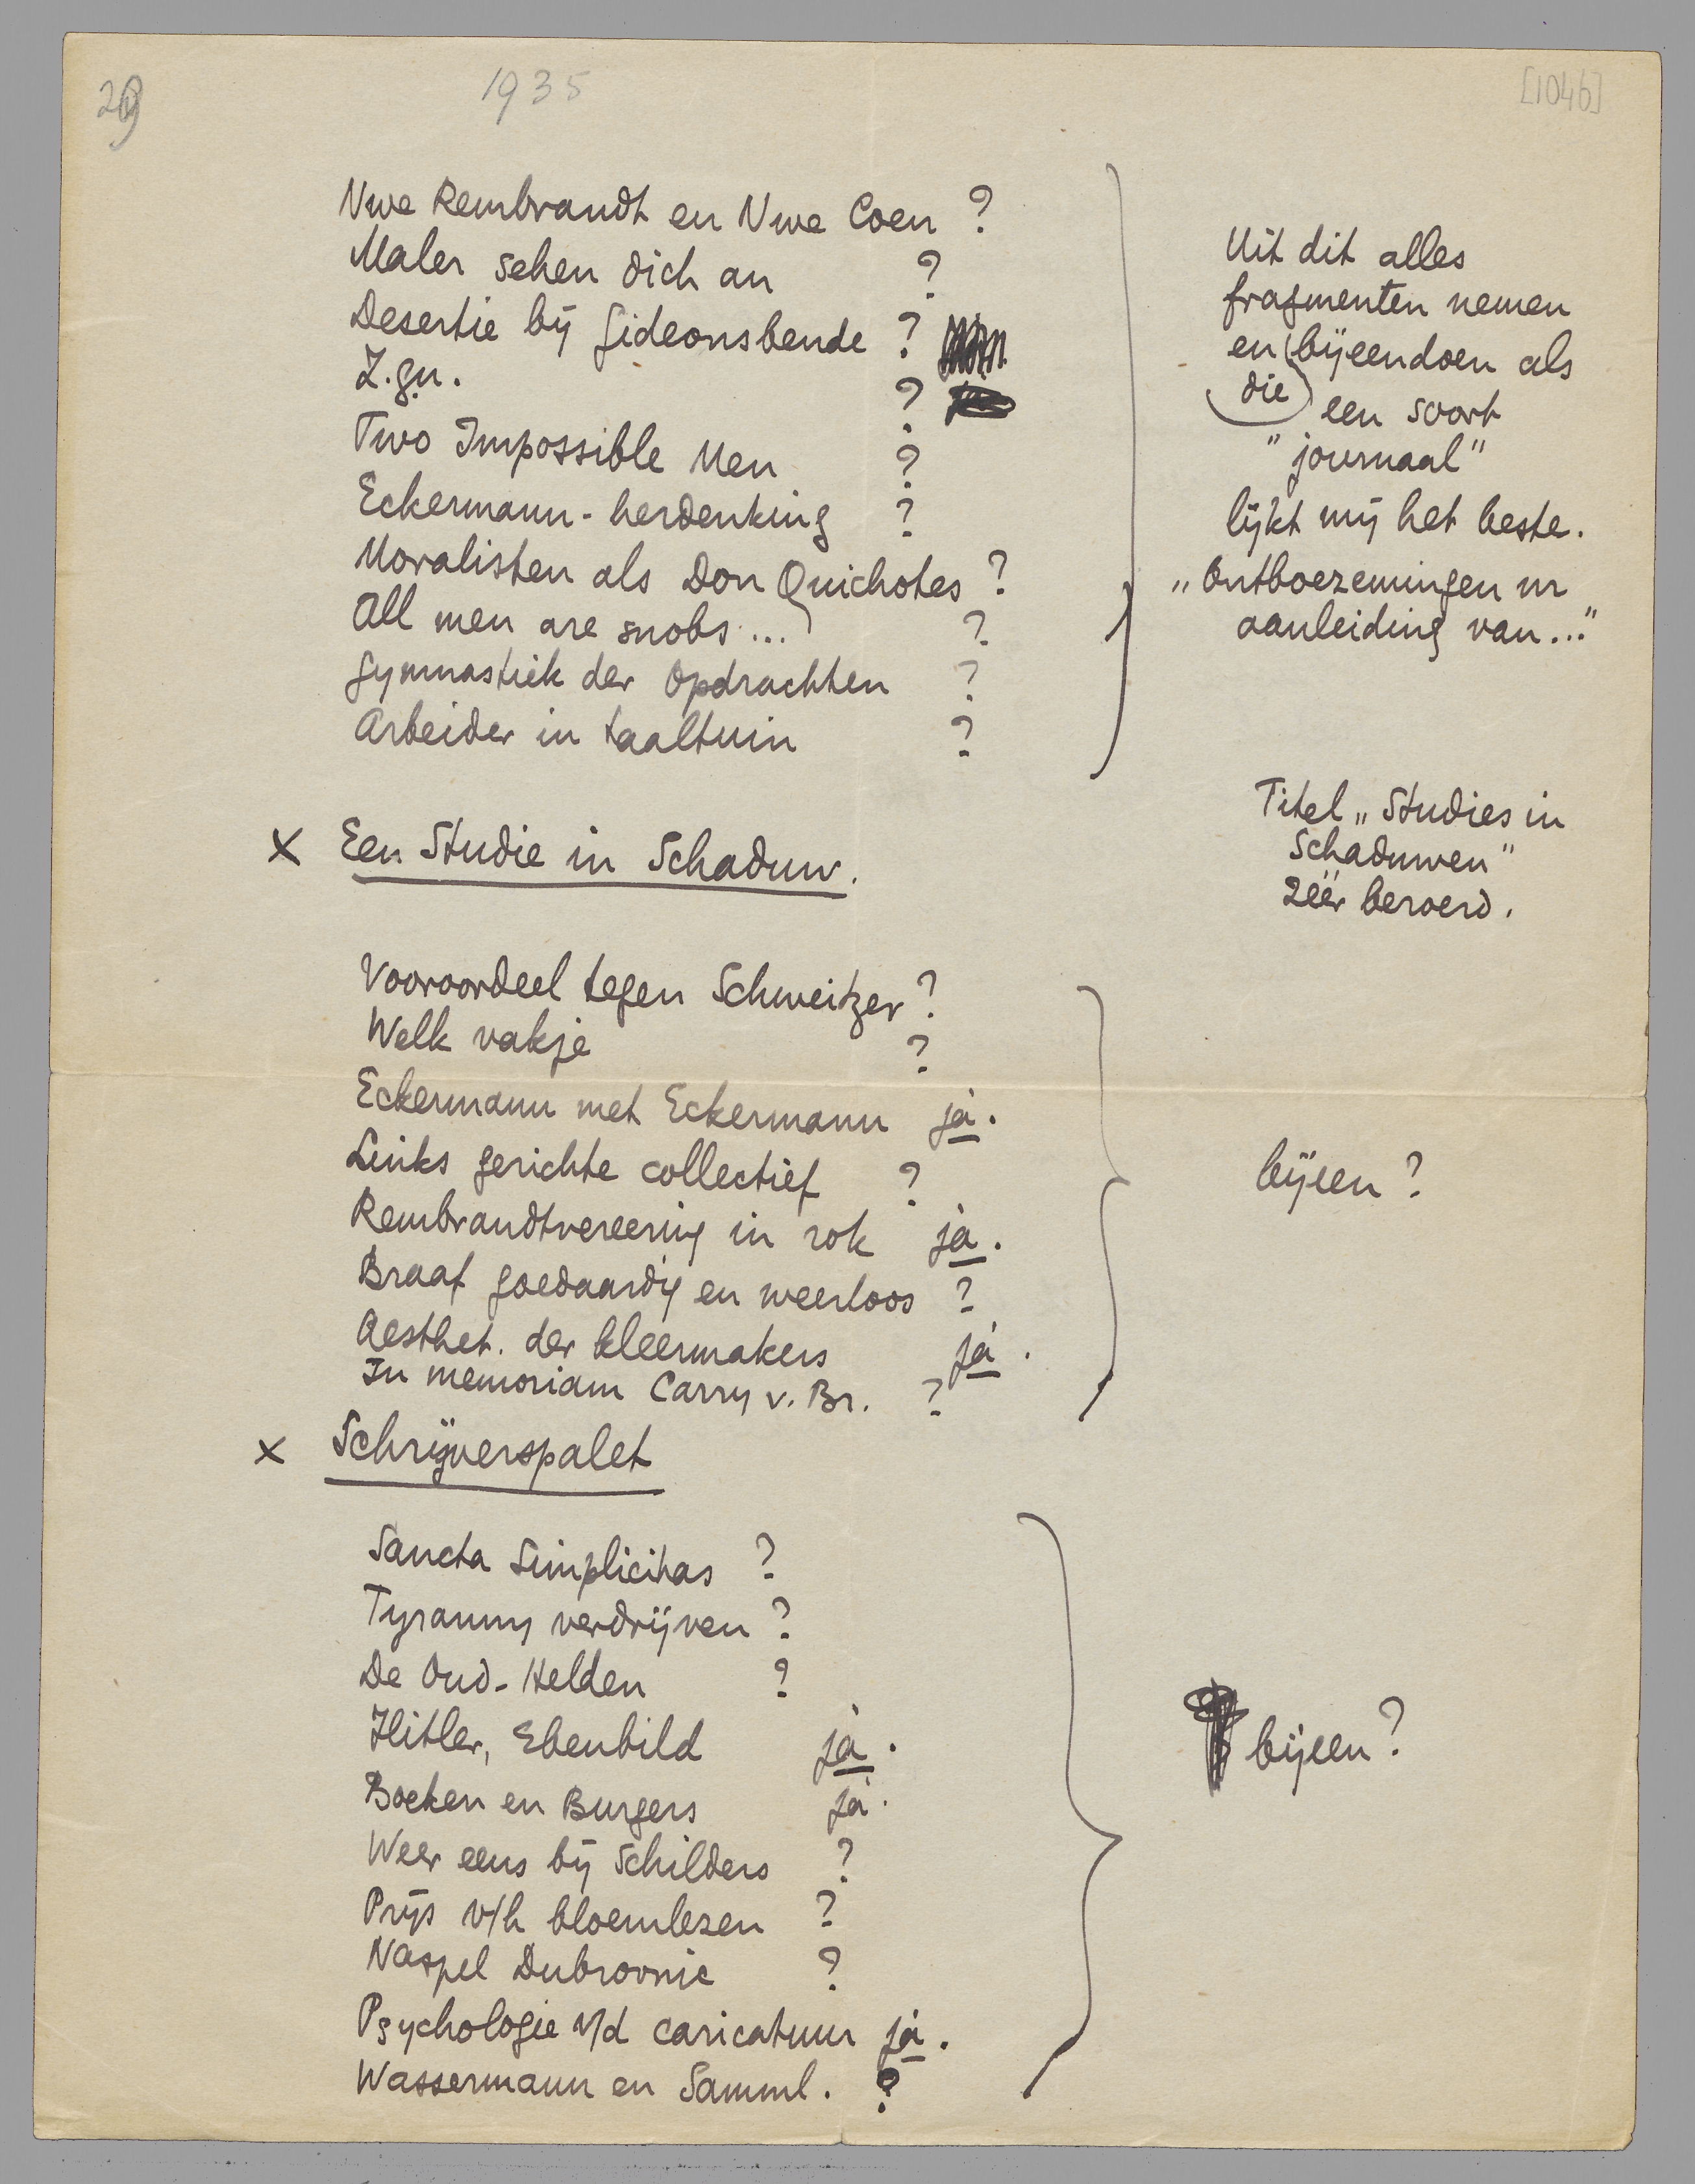 29
1935
[1046]
Nwe Rembrandt en Nwe Coen ?
Maler sehen dich an ?
Desertie bij Gideonsbende ?
Z.gn. ?
Two Impossible Men ?
Eckermann-herdenking ?
Moralisten als Don Quichotes ?
All men are snobs ... ?
Gymnastiek der Opdrachten ?
Arbeider in taaltuin ?
Uit dit alles
fragmenten nemen
en bijeendoen als
die
een soort
"journaal"
lijkt mij het beste.
„Ontboezemingen nr
aanleiding van..."
x Een Studie in Schaduw.
Titel „Studies in
Schaduwen"
zéér beroerd.
Vooroordeel tegen Schweitzer ?
Welk vakje ?
Eckermann met Eckermann ja.
Links gerichte collectief ?
Rembrandtvereering in rok ja.
Braaf goedaardig en weerloos ?
Aesthet. der kleermakers ja.
In memoriam Carry v. Br. ?
bijeen ?
x Schrijverspalet
Sancta Simplicitas ?
Tyranny verdrijven ?
De Oud-Helden ?
Hitler, Ebenbild ja.
Boeken en Burgers ja.
Weer eens bij Schilders ?
Prijs v/h bloemlezen ?
Naspel Dubrovnic ?
Psychologie v/d caricatuur ja.
Wassermann en Samml. ?
bijeen ?